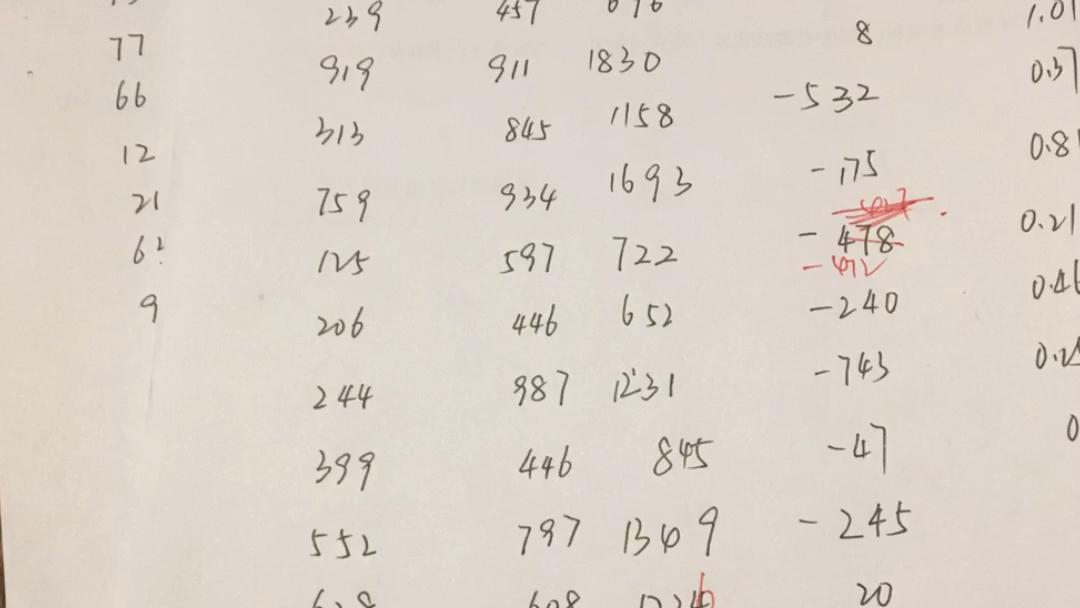 239 457 696
77 919 911 1830 8 1.01
66 313 845 1158 -532 0.37
12 759 934 1693 -175 0.81
21 125 597 722 -478 0.21
-472
62 206 446 652 -240 0.46
9 244 987 1231 -743 0.25
399 446 845 -47 0
552 797 1349 -245
628 608 20